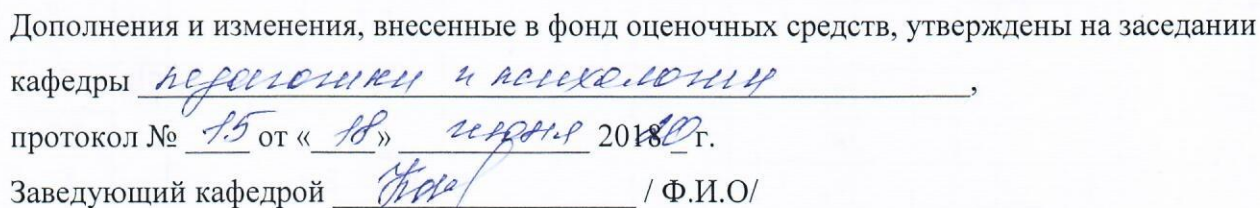 Дополнения и изменения, внесенные в фонд оценочных средств, утверждены на заседании
кафедры педагогики и психологии,
протокол № 15 от «18» июня 2020 г.
Заведующий кафедрой / Ф.И.О/